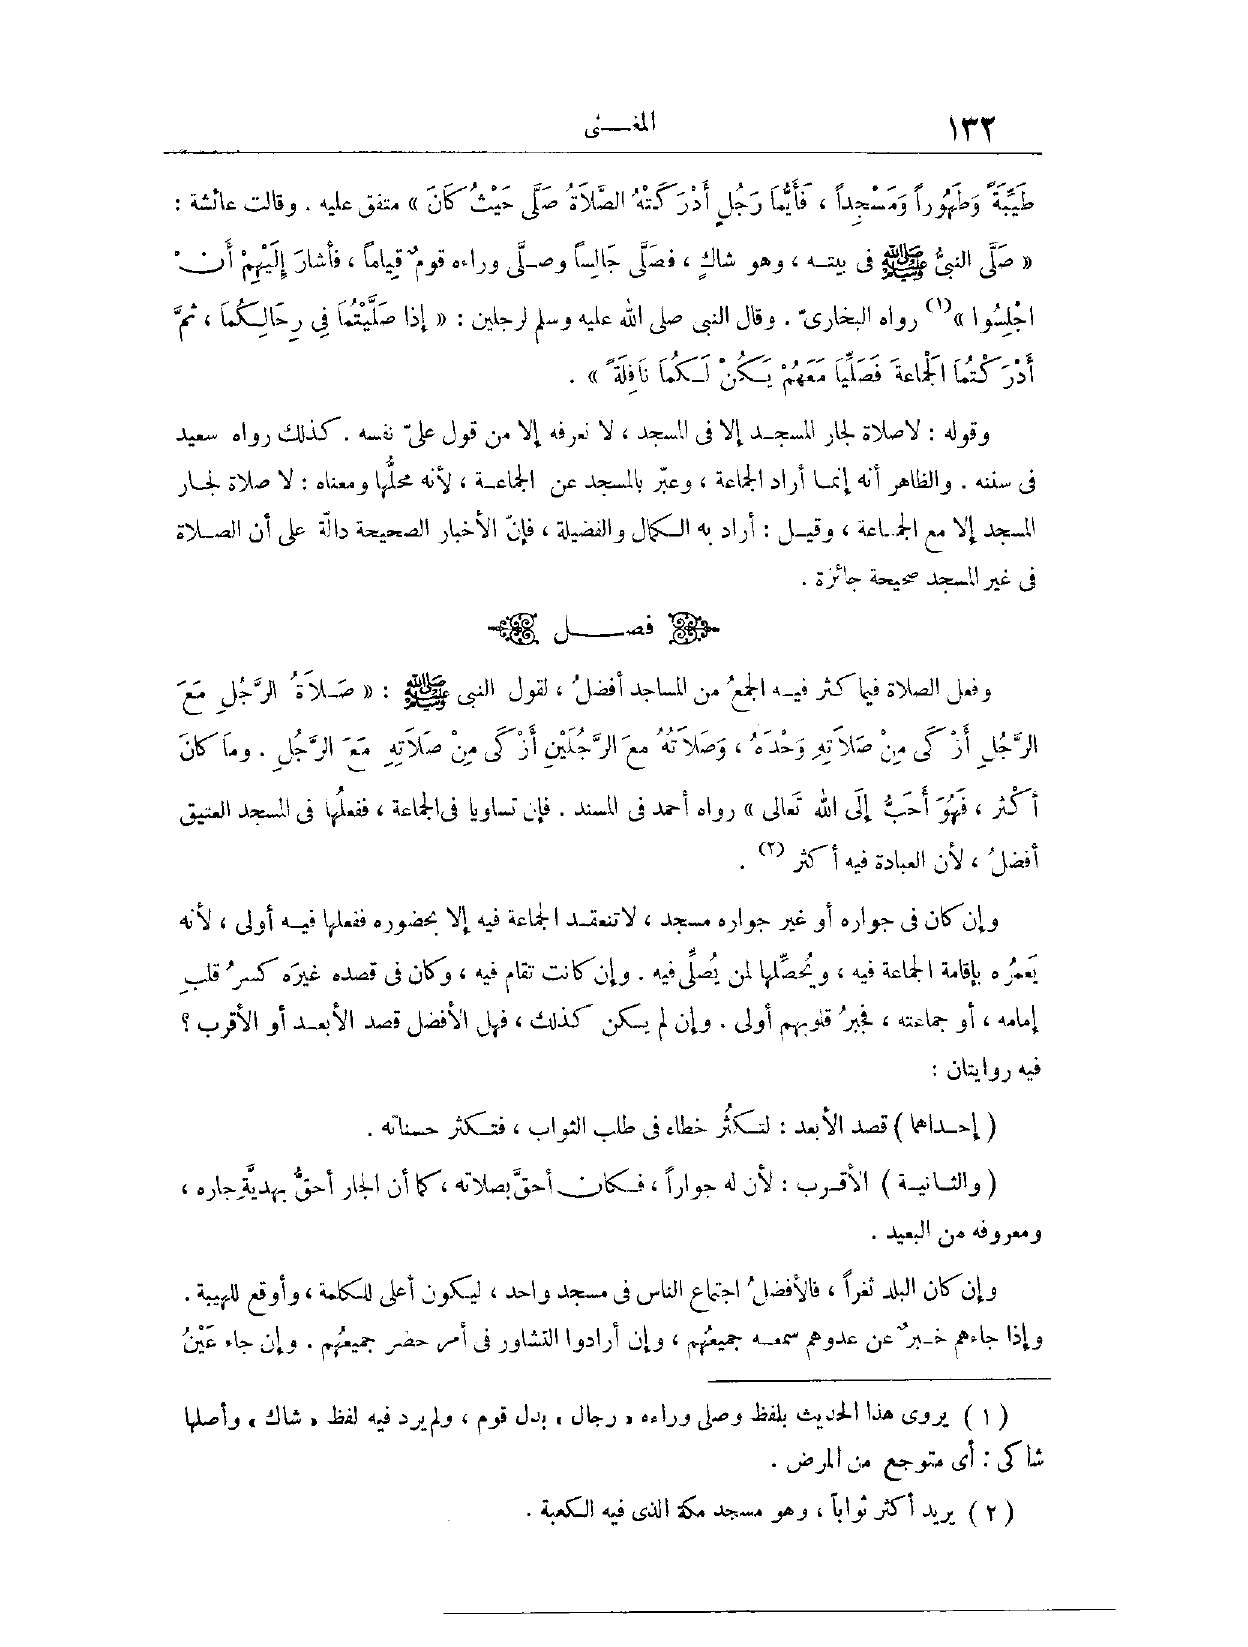 ١٣٢
المغـــنى
طَيِّبَةً وَطَهُوراً وَمَسْجِداً ، فَأَيُّمَا رَجُلٍ أَدْرَكَتْهُ الصَّلَاةُ صَلَّى حَيْثُ كَانَ » متفق عليه . وقالت عائشة :
« صَلَّى النبىُّ ﷺ فى بيتـه ، وهو شاكٍ ، فصَلَّى جَالِساً وصـلَّى وراءه قومٌ قِياماً ، فأشارَ إِلَيْهِمْ أَنْ
اجْلِسُوا »(١) رواه البخارىّ . وقال النبى صلى الله عليه وسلم لرجلين : « إذا صَلَّيْتُمَا فِي رِحَالِـكُمَا ، ثمَّ
أَدْرَكْتُمَا الْجَماعةَ فَصَلِّيَا مَعَهُمْ يَـكُنْ لَـكُمَا نَافِلَةً » .
وقوله : لاصلاة لجار المسجـد إلا فى المسجد ، لا نعرفه إلا من قول علىّ نفسه . كذلك رواه سعيد
فى سننه . والظاهر أنه إنمـا أراد الجماعة ، وعبّر بالمسجد عن الجماعـة ، لأنه محلُّها ومعناه : لا صلاة لجـار
المسجد إلا مع الجمـاعة ، وقيـل : أراد به الـكمال والفضيلة ، فإنّ الأخبار الصحيحة دالّة على أن الصـلاة
فى غير المسجد صحيحة جائزة .
فصـــــل
وفعل الصلاة فيما كثر فيـه الجمعُ من المساجد أفضلُ ، لقول النبى ﷺ : « صَـلَاةُ الرَّجُلِ مَعَ
الرَّجُلِ أَزْكَى مِنْ صَلَاتِهِ وَحْدَهُ ، وَصَلَاتُهُ معَ الرَّجُلَيْنِ أَزْكَى مِنْ صَلَاتِهِ مَعَ الرَّجُلِ . وما كَانَ
أكْثر ، فَهُوَ أَحَبُّ إِلَى اللهِ تَعالى » رواه أحمد فى المسند . فإن تساويا فى الجماعة ، ففعلُها فى المسجد العتيق
أفضلُ ، لأن العبادة فيه أكثر (٢) .
وإن كان فى جواره أو غير جواره مسجد ، لاتنعقـد الجماعة فيه إلا بحضوره ففعلها فيـه أولى ، لأنه
يَعمُرُه بإقامة الجماعة فيه ، ويُحصِّلها لمن يُصلِّى فيه . وإن كانت تقام فيه ، وكان فى قصده غيرَه كسرُ قلبِ
إمامه ، أو جماعته ، فجبرُ قلوبهم أولى . وإن لم يـكن كذلك ، فهل الأفضل قصد الأبعـد أو الأقرب ؟
فيه روايتان :
( إحـداهما ) قصد الأبعد : لتـكثُر خطاه فى طلب الثواب ، فتـكثر حسناته .
( والثـانيـة ) الأقـرب : لأن له جواراً ، فـكان أحقّ بصلاته ، كما أن الجار أحقُّ بهديَّة جاره ،
ومعروفه من البعيد .
وإن كان البلد ثغراً ، فالأفضلُ اجتماع الناس فى مسجد واحد ، ليكون أعلى للـكلمة ، وأوقع للهيبة .
وإذا جاءهم خـبرٌ عن عدوهم سمعـه جميعُهم ، وإن أرادوا التشاور فى أمر حضر جميعُهم . وإن جاء عَيْنُ
( ١ ) يروى هذا الحديث بلفظ وصلى وراءه « رجال » بدل قوم ، ولم يرد فيه لفظ « شاك » وأصلها
شاكى : أى متوجع من المرض .
( ٢ ) يريد أكثر ثواباً ، وهو مسجد مكة الذى فيه الكعبة .